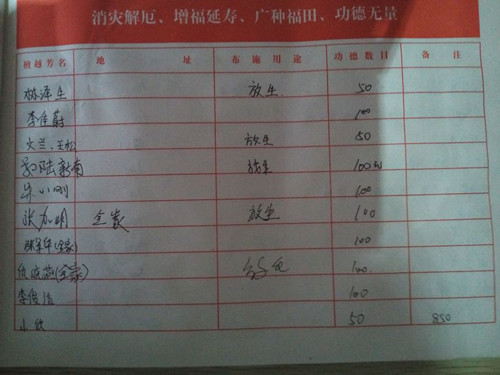 消灾解厄、增福延寿、广种福田、功德无量
檀越芳名 地 址 布施用途 功德数目 备 注
林泽生 放生 50
李佳蔚 100
火兰、王松 放生 50
陆新南 放生 100
朱小刚 100
张加明 全家 放生 100
(全家) 100
(全家) 放生 100
李俊洁 100
小欣 50 850